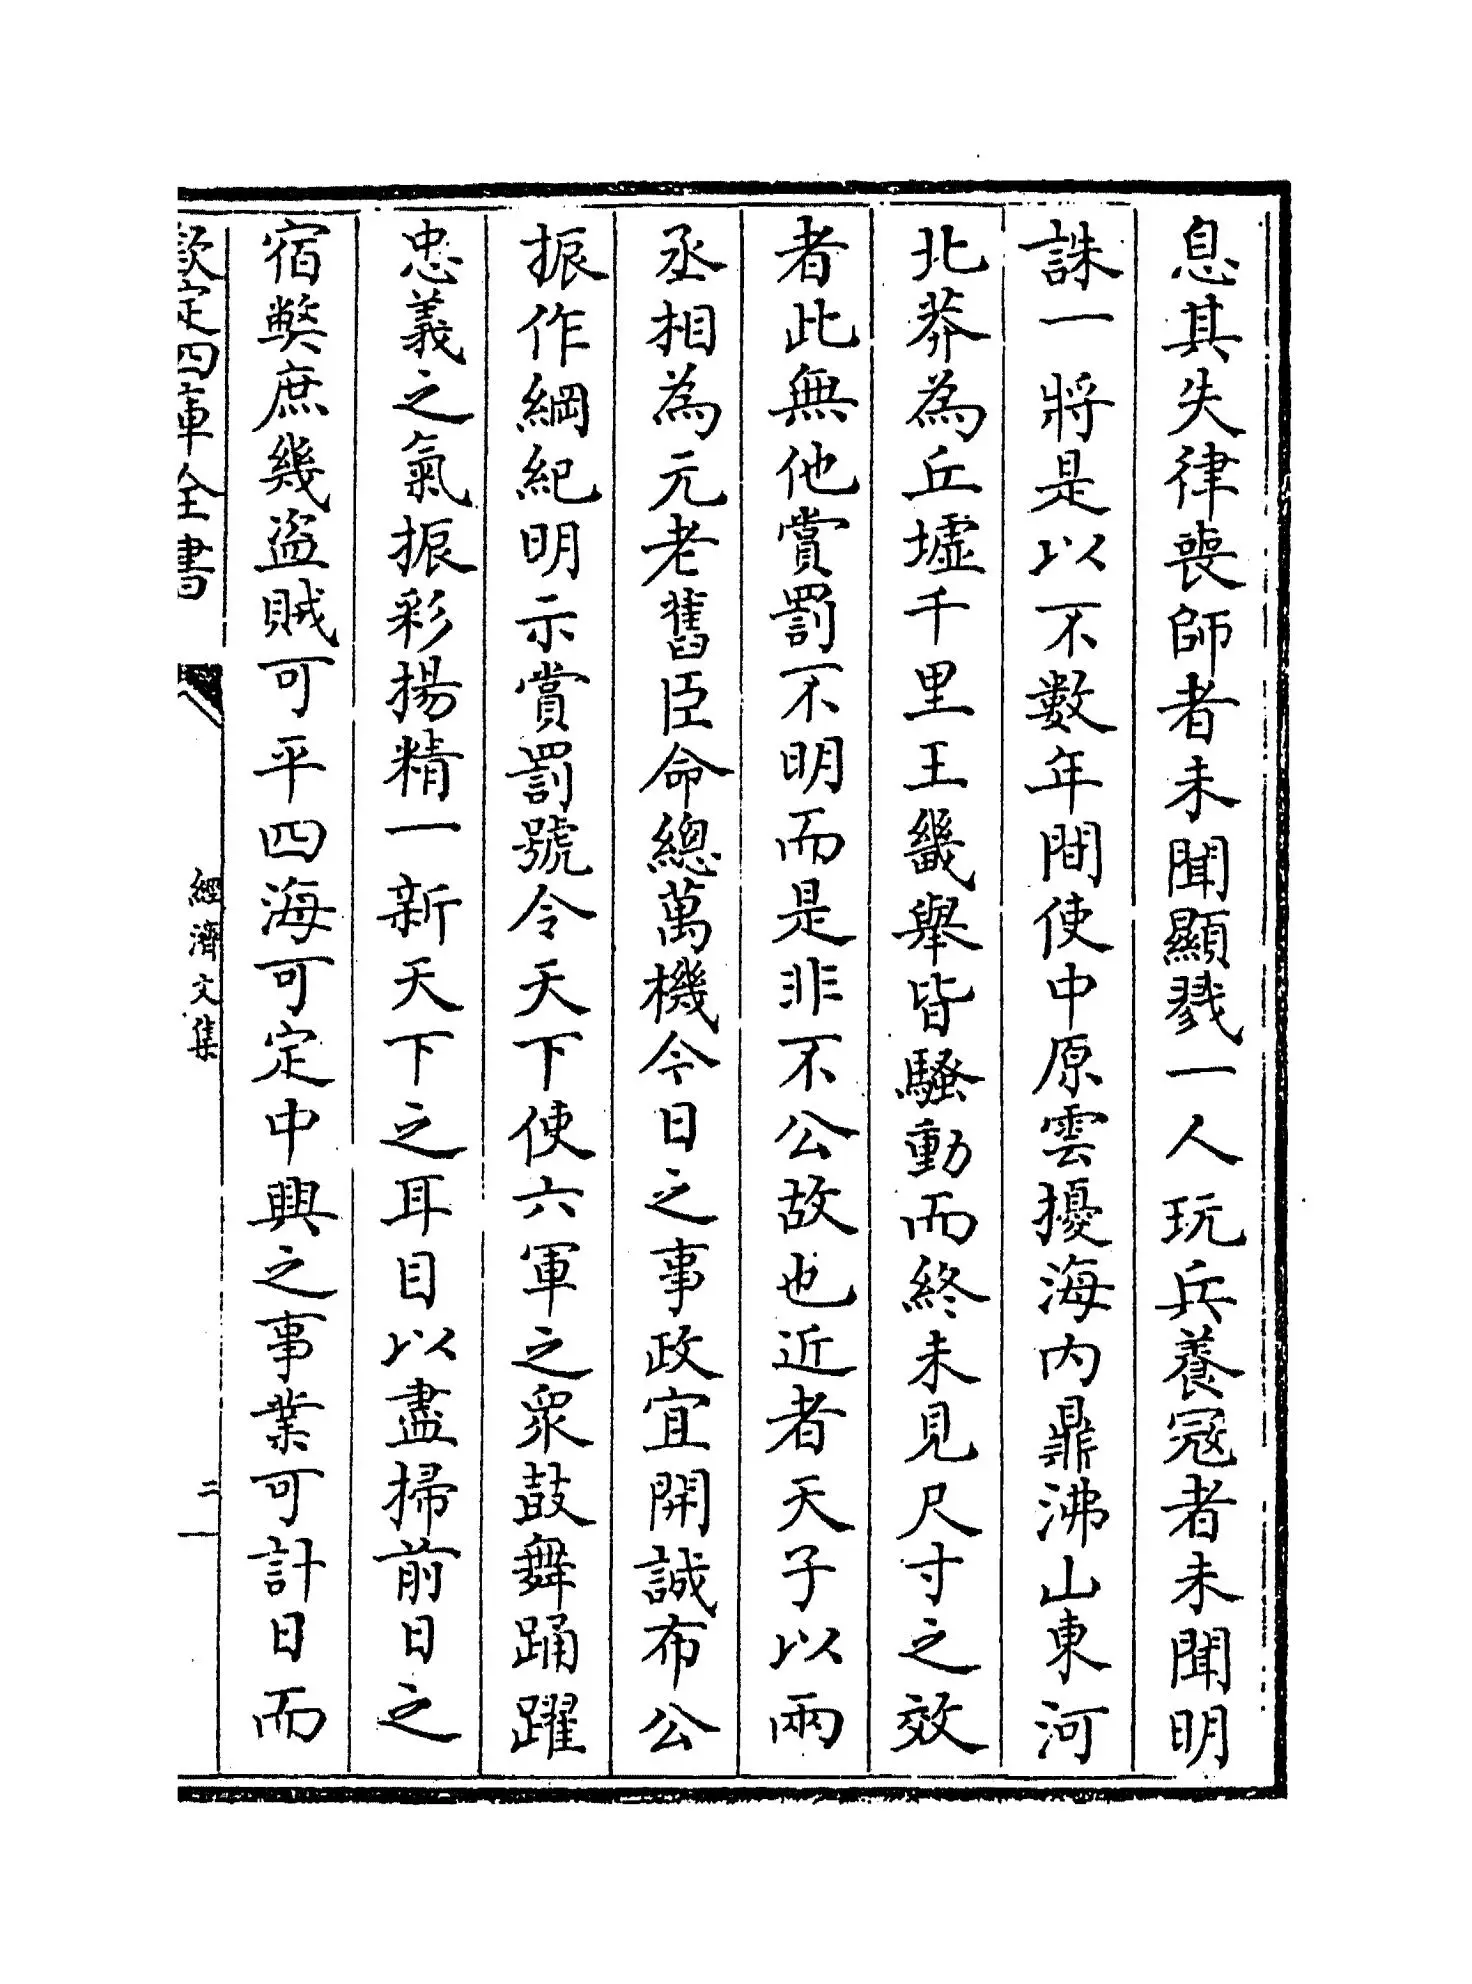 息其失律喪師者未聞顯戮一人玩兵養冦者未聞明
誅一將是以不數年間使中原雲擾海内鼎沸山東河
北莽為丘墟千里王畿舉皆騷動而終未見尺寸之效
者此無他賞罰不明而是非不公故也近者天子以兩
丞相為元老舊臣命總萬機今日之事政宜開誠布公
振作綱紀明示賞罰號令天下使六軍之衆鼓舞踊躍
忠義之氣振彩揚精一新天下之耳目以盡掃前日之
宿弊庶幾盜賊可平四海可定中興之事業可計日而
欽定四庫全書
經濟文集
二